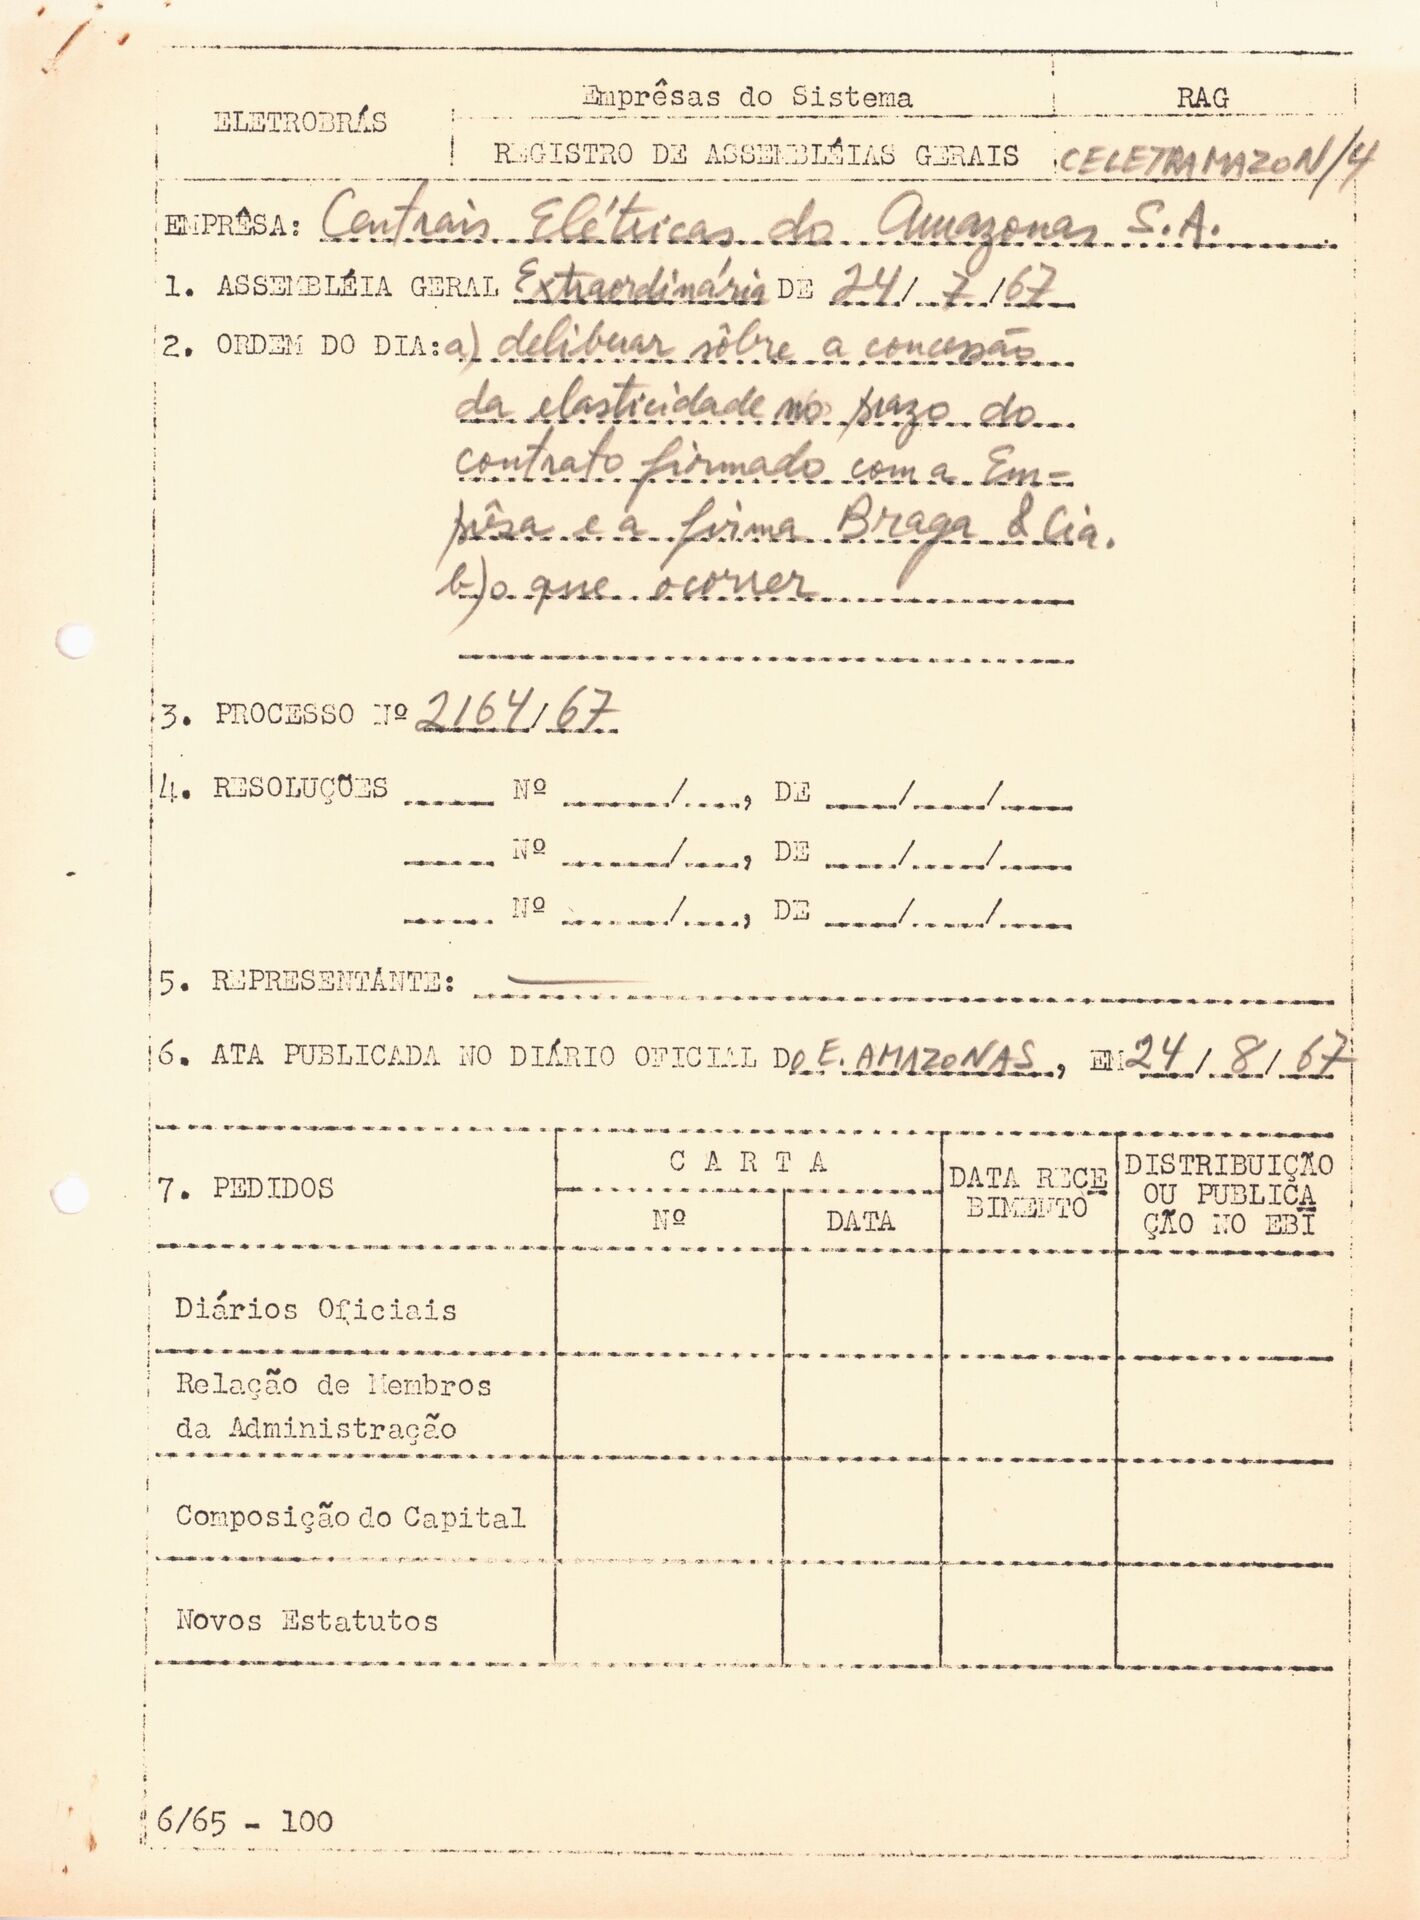 ELETROBRÁS
Emprêsas do Sistema
RAG
REGISTRO DE ASSEMBLÉIAS GERAIS
CELETRAMAZON/4
EMPRÊSA: Centrais Elétricas do Amazonas S.A.
1. ASSEMBLÉIA GERAL Extraordinária DE 24/7/67
2. ORDEM DO DIA: a) deliberar sôbre a concessão
da elasticidade no prazo do
contrato firmado com a Em=
prêsa e a firma Braga & Cia.
b) o que ocorrer
3. PROCESSO Nº 2164/67
4. RESOLUÇÕES ..... Nº ....../...., DE ..../..../....
..... Nº ....../...., DE ..../..../....
..... Nº ....../...., DE ..../..../....
5. REPRESENTÁNTE: —
6. ATA PUBLICADA NO DIÁRIO OFICIAL Do E. AMAZONAS, EM 24/8/67
7. PEDIDOS
CARTA
Nº
DATA
DATA RECE
BIMENTO
DISTRIBUIÇÃO
OU PUBLICA
ÇÃO NO EBI
Diários Oficiais
Relação de Membros
da Administração
Composição do Capital
Novos Estatutos
6/65 - 100